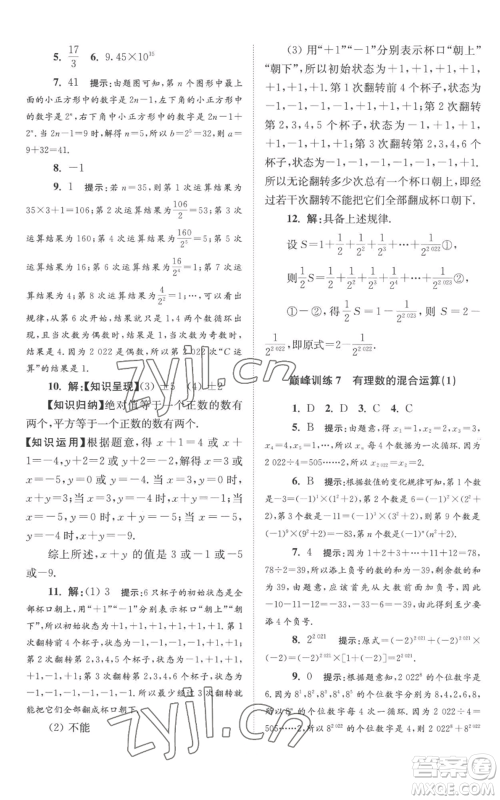 5. 17/3  6. 9.45×10¹⁵
7. 41 提示:由题图可知,第 n 个图形中最上面的
小正方形中的数字是 2n−1,左下角的小正方形中
的数字是 2ⁿ,右下角的小正方形中的数字是 2n−
1+2ⁿ.当 2n−1=9 时,解得 n=5,则 2⁵=32,所以 a=
9+32=41.
8. −1
9. 1 提示:若 n=35,则第 1 次运算结果为
35×3+1=106,第 2 次运算结果为 106/2=53,第 3 次
运算结果为 160,第 4 次运算结果为 160/2⁵=5,第 5 次
运算结果为 16,第 6 次运算结果为 16/2⁴=1,第 7 次
运算结果为 4,第 8 次运算结果为 1……可以看出,
从第 6 次开始,结果就只是 1,4 两个数循环出现,且
当次数为偶数时,结果是 1,当次数为奇数时,
结果是 4.因为 2 022 是偶数,所以第 2 022 次“C 运
算”的结果是 1.
10. 解:【知识呈现】(3) ±5 (4) ±2
【知识归纳】绝对值等于一个正数的数有
两个,平方等于一个正数的数有两个.
【知识运用】根据题意,得 x+1=4 或 x+
1=−4,y+2=2 或 y+2=−2.解得 x=3 或
x=−5,y=0 或 y=−4.当 x=3,y=0 时,x+
y=3;当 x=3,y=−4 时,x+y=−1;当 x=
−5,y=0 时,x+y=−5;当 x=−5,y=−4 时,
x+y=−9.
综上所述,x+y 的值是 3 或−1 或−5
或−9.
11. 解:(1) 3 提示:6 只杯子的初始状态为杯口
全部朝上,用“+1”“−1”分别表示杯口“朝上”“朝下”,
则开始时为+1,+1,+1,+1,+1,+1,第 1 次翻转
第 1,2,3,4 个杯子后变为−1,−1,−1,−1,+1,+1,
第 2 次翻转第 2,3,4,5 个杯子后变为−1,+1,+1,
+1,−1,+1,第 3 次翻转第 2,3,4,6 个杯子后变为
−1,−1,−1,−1,−1,−1,所以最少经过 3 次翻转
能把它们全部翻成杯口朝下.
(2) 不能
(3) 用“+1”“−1”分别表示杯口“朝上”
“朝下”,所以初始状态为+1,+1,+1,+1,
+1,+1,第 1 次翻转第 1,2,3,4,5 个杯子后
状态为−1,−1,−1,−1,−1,+1,第 2 次翻
转第 2,3,4,5,6 个杯子后状态为−1,+1,
+1,+1,+1,−1,第 3 次翻转第 2,3,4,5,6
个杯子后状态为−1,−1,−1,−1,−1,+1,
所以无论翻转多少次都不能使杯口朝下,即
n 不存在.
12. 解:具备上述规律.
设 S=1+1/2+1/2²+1/2³+…+1/2²⁰²²①,
则 1/2S=1/2+1/2²+1/2³+…+1/2²⁰²³②,
①−②,得 1/2S=1−1/2²⁰²³,所以 S=2−
1/2²⁰²²,即原式=2−1/2²⁰²².
巅峰训练 7 有理数的混合运算(1)
1. D 2. D 3. C 4. A
x₄=5……所以 x₁,x₂,x₃,x₄ 每 4 个数一个循环.因为
2 022÷4=505……2,所以 x₂₀₂₂=x₂.
6. B 提示:根据数值的变化规律可得:第 1 个数
是−3=(−1)¹×(1²+2),第 2 个数是 6=(−1)²×(2²+
2),第 3 个数是−11=(−1)³×(3²+2)……所以第 9 个
数是(−1)⁹×(9²+2)=−83.
7. 4 提示:因为 1+2+3+…+11+12=78,
78÷2=39,所以添加负号的数的和为−39,其余数的
和为 39.由题意,应该从绝对值最大的数开始,因为
−10−11−12=−33,−33−6=−39,所以至少要添
4 个负号.
8. 2²⁰²¹ 提示:原式=(−2)²⁰²¹+(−2)²⁰²²=
(−2)²⁰²¹×[1+(−2)]=2²⁰²¹.
9. 0 提示:由题意知,2 022⁸ 的个位数字是
6.因为 8¹,8²,8³,8⁴,8⁵,…的个位数字分别为 8,4,2,
6,8,…,所以每 4 个数字一个循环.因为 2 022÷4=
505……2,所以 8²⁰²² 的个位数字是 4,则 2 022⁸+8²⁰²²
的个位数字是 0.
zyjl.cn
zyjl.cn
答案圈
MXQE.COM